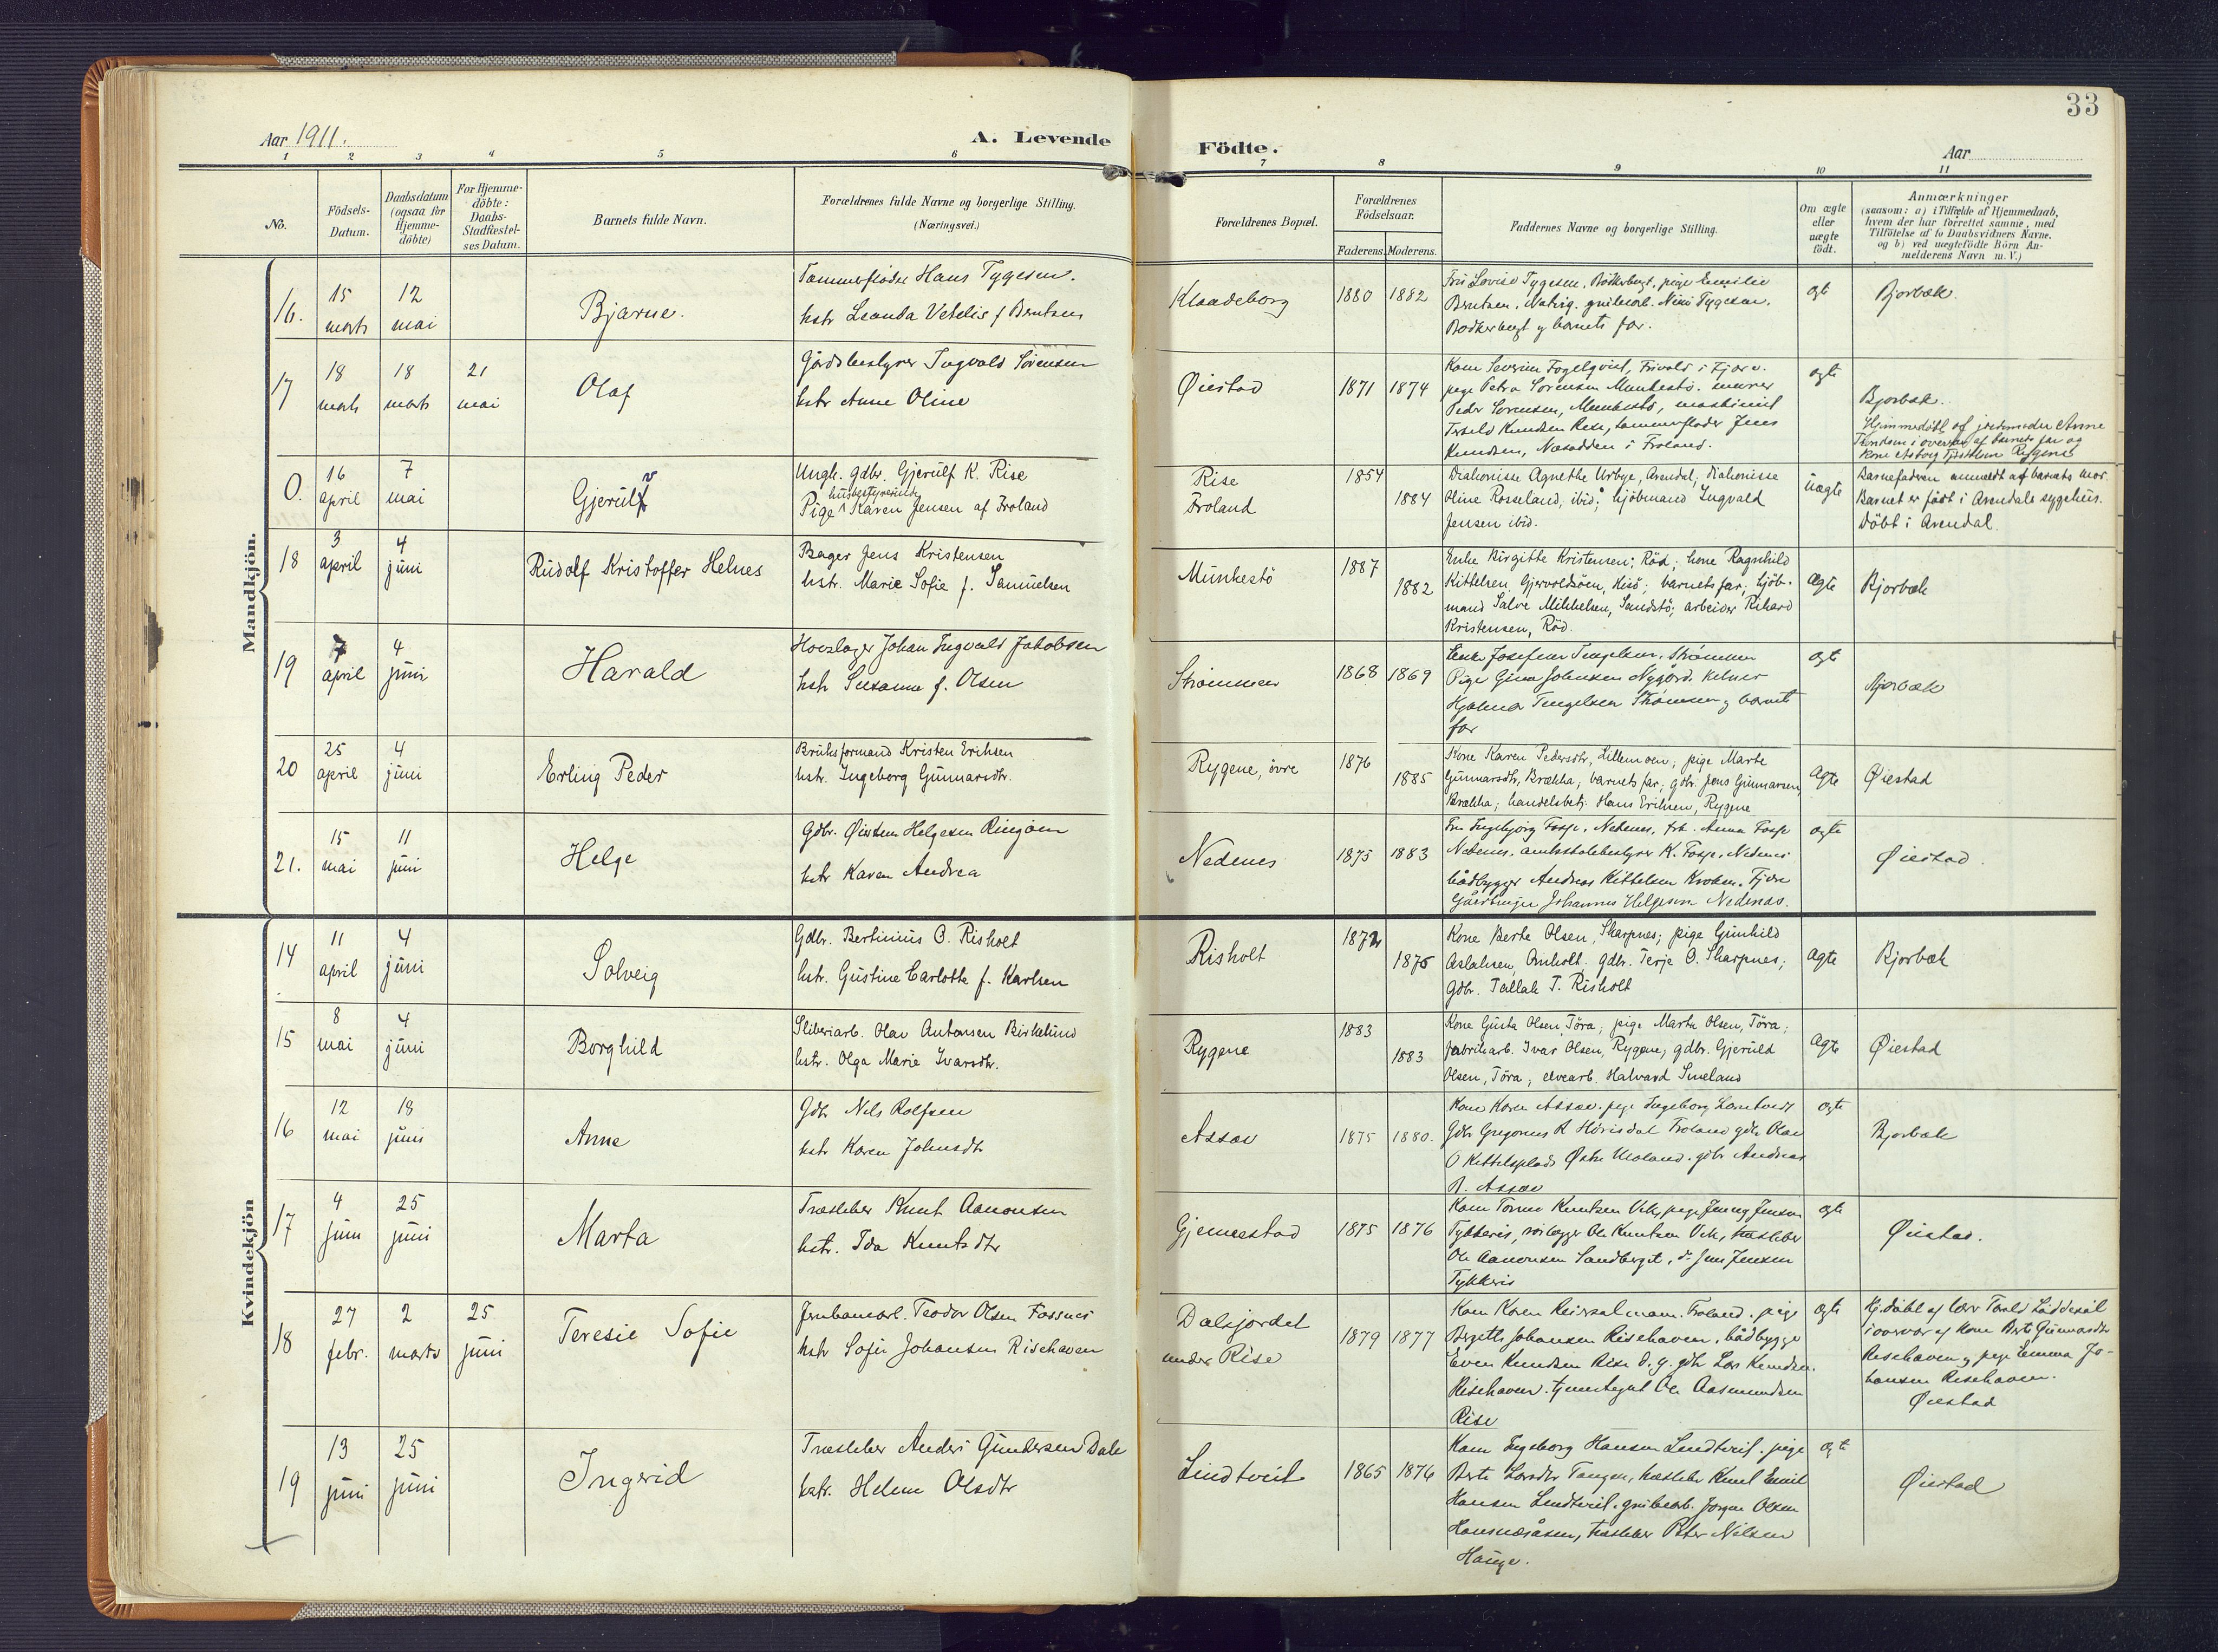 33
Aar 1911.
A. Levende
Födte.
Aar
1 2 3 4 5 6 7 8 9 10 11
No.
Födsels-
Datum.
Daabsdatum
(ogsaa for
Hjemme-
döbte)
For Hjemme-
döbte:
Daabs-
Stadfæstel-
ses Datum.
Barnets fulde Navn.
Forældrenes fulde Navne og borgerlige Stilling.
(Næringsvei.)
Forældrenes Bopæl.
Forældrenes
Födselsaar.
Faderens. Moderens.
Faddernes Navne og borgerlige Stilling.
Om ægte
eller
uægte
födt.
Anmærkninger
(saasom: a) i Tilfælde af Hjemmedaab,
hvem der har forrettet samme, med
Tilföielse af to Daabsvidners Navne,
og b) ved uægtefödte Börn An-
melderens Navn m. V.)
Mandkjön.
16.
15
marts
12
mai
Bjarne.
Tømmerfløder Hans Tygesen.
hstr f. Bentsen
Klaadeborg
1880 1882
Fru Lovise Tygesen, pige Emilie
Bentsen, Nini Tygesen,
og barnets far.
egt
Bjorbæk.
17
18
marts
18
marts
21
mai
Olaf
Gårdsbestyrer Ingvald Sörensen
hstr Anne Oline
Øiestad
1871 1874
Kone Severine Fogelqvist, i Fjære.
pige Petra Sørensen Munkestø. murer
Peder Sørensen, Munkestø, maskinist
Terkeld Knudsen Rise, tømmerfløder Jens
Knudsen, Næsodden i Froland.
egte
Bjorbæk.
Hjemmedöbt af jordmoder Anne
i overvær af barnets far og
kone Rygene
0.
16
april
7
mai
Gjerulf v
Ungk. gdbr. Gjerulf K. Rise
husbestyrerinde
Pige Karen Jensen af Froland
Rise
Froland
1854
1884
Diakonisse Agnethe Urbye, Arendal; diakonisse
Oline Rosseland, ibid; kjöbmand Ingvald
Jensen ibid.
uægte
Barnefaderen anmeldt af barnets mor.
Barnet er födt i Arendals sygehus.
Döbt i Arendal.
18
3
april
4
juni
Rudolf Kristoffer Helnes
Bager Jens Kristensen
hstr. Marie Sofie f. Samuelsen
Munkestö
1887
1882
Enke Birgitte Kristensen, Röd; kone Ragnhild
Kittelsen Gjervoldsöen, Hisö; barnets far; kjöb-
mand Salve Mikkelsen, Sandstö; arbeider Rikard
Kristensen, Röd.
Ægte
Bjorbæk
19
7
april
4
juni
Harald
Hovslager Johan Ingvald Jakobsen
hstr Susanne f. Olsen
Strømmen
1868 1869
Enke Josefine Tengelsen, Strømmen
Pige Gina Johnsen Nygård. Kelner
Hjalmar Tengelsen Strømmen og barnets
far
egte
Bjorbæk
20
25
april
4
juni
Erling Peder
Bruksformand Kristen Eriksen
hstr. Ingeborg Gunnarsdtr.
Rygene, övre
1876
1885
Kone Karen Pedersdtr, Lillemoen; pige Marte
Gunnarsdtr, Brække; barnets far; gdbr. Jens Gunnarsen
Brække; handelsbetj. Hans Eriksen, Rygene
Ægte
Øiestad
21.
15
mai
11
juni
Helge
Gdbr. Øistein Helgesen Ringöen
hstr Karen Andrea
Nedenes
1875 1883
Fru Ingebjörg Fosse, Nedenes, frk. Anna Fosse
Nedenes. amtsskolebestyrer K. Fosse, Nedenes
bådbygger Andreas Kittelsen Kroken, Fjære
Johannes Helgesen Nedenæs.
egte
Øiestad.
Kvindekjön
14
11
april
4
juni
Solveig
Gdbr. Bertinius O. Risholt
hstr. Gustine Carlotte f. Karlsen
Risholt
1872
1875
Kone Berte Olsen, Skarpnes; pige Gunhild
Aslaksen, Omholt. gdbr. Terje O. Skarpnes;
gdbr. Tallak T. Risholt
Ægte
Bjorbæk
15
8
mai
4
juni
Borghild
Sliberiarb. Olav Antonsen Birkelund
hstr. Olga Marie Ivarsdtr.
Rygene
1883
1883
Kone Gusta Olsen, Töra; pige Marta Olsen, Töra;
fabrikarb. Ivar Olsen, Rygene; gdbr. Gjeruld
Olsen, Töra; elvearb. Halvard Smeland
Ægte
Øiestad
16
12
mai
18
juni
Anne
Gdbr Nils Rolfsen
hstr Karen Johnsdtr
Assev
1875 1880.
Kone Karen Assev. pige Ingeborg
Gdbr Gregorius R Hörisdal Froland gdbr Olav
O Kittelsplads Østre Moland. gdbr Andreas
R. Assev
egte
Bjorbæk
17
4
juni
25
juni
Marta
Træsliber Knut Aanonsen
hstr. Ida Knutsdtr
Gjennestad
1875 1876
Kone Torine Knutsen Vik, pige Jenny Jensen
Tykkeris, Ole Knutsen Vik, træsliber
Ole Aanonsen Sandberget, d. Jens Jensen
Tykkeris
egte
Øiestad.
18
27
febr.
2
marts
25
juni
Teresie Sofie
Jernbanearb. Teodor Olsen Fossnes
hstr Sofie Johansen Risehaven
Dalsjordet
under Rise
1879 1877
Kone Karen Froland. pige
Bergette Johansen Risehaven, bådbygger
Even Knudsen Rise d. y. gdbr Lars Knudsen
Risehaven. tjenestegut Ole Aasmundsen
Rise
egte
Hj.döbt af lærer Tarald Løddesøl
i overvær af kone Berte Gunnarsdtr
Risehaven og pige Emma Jo-
hansen Risehaven.
Øiestad
19
13
juni
25
juni
Ingerid
Træsliber Anders Gundersen Dale
hstr. Helene Olsdtr
Lindtveit
1865 1876
Kone Ingeborg Hansen Lindtveit. pige
Berte Larsdtr Tangen, træsliber Knut Emil
Hansen Lindtveit. grubearb. Jörgen Olsen
træsliber Peter Nilsen
Hauge.
egte
Øiestad